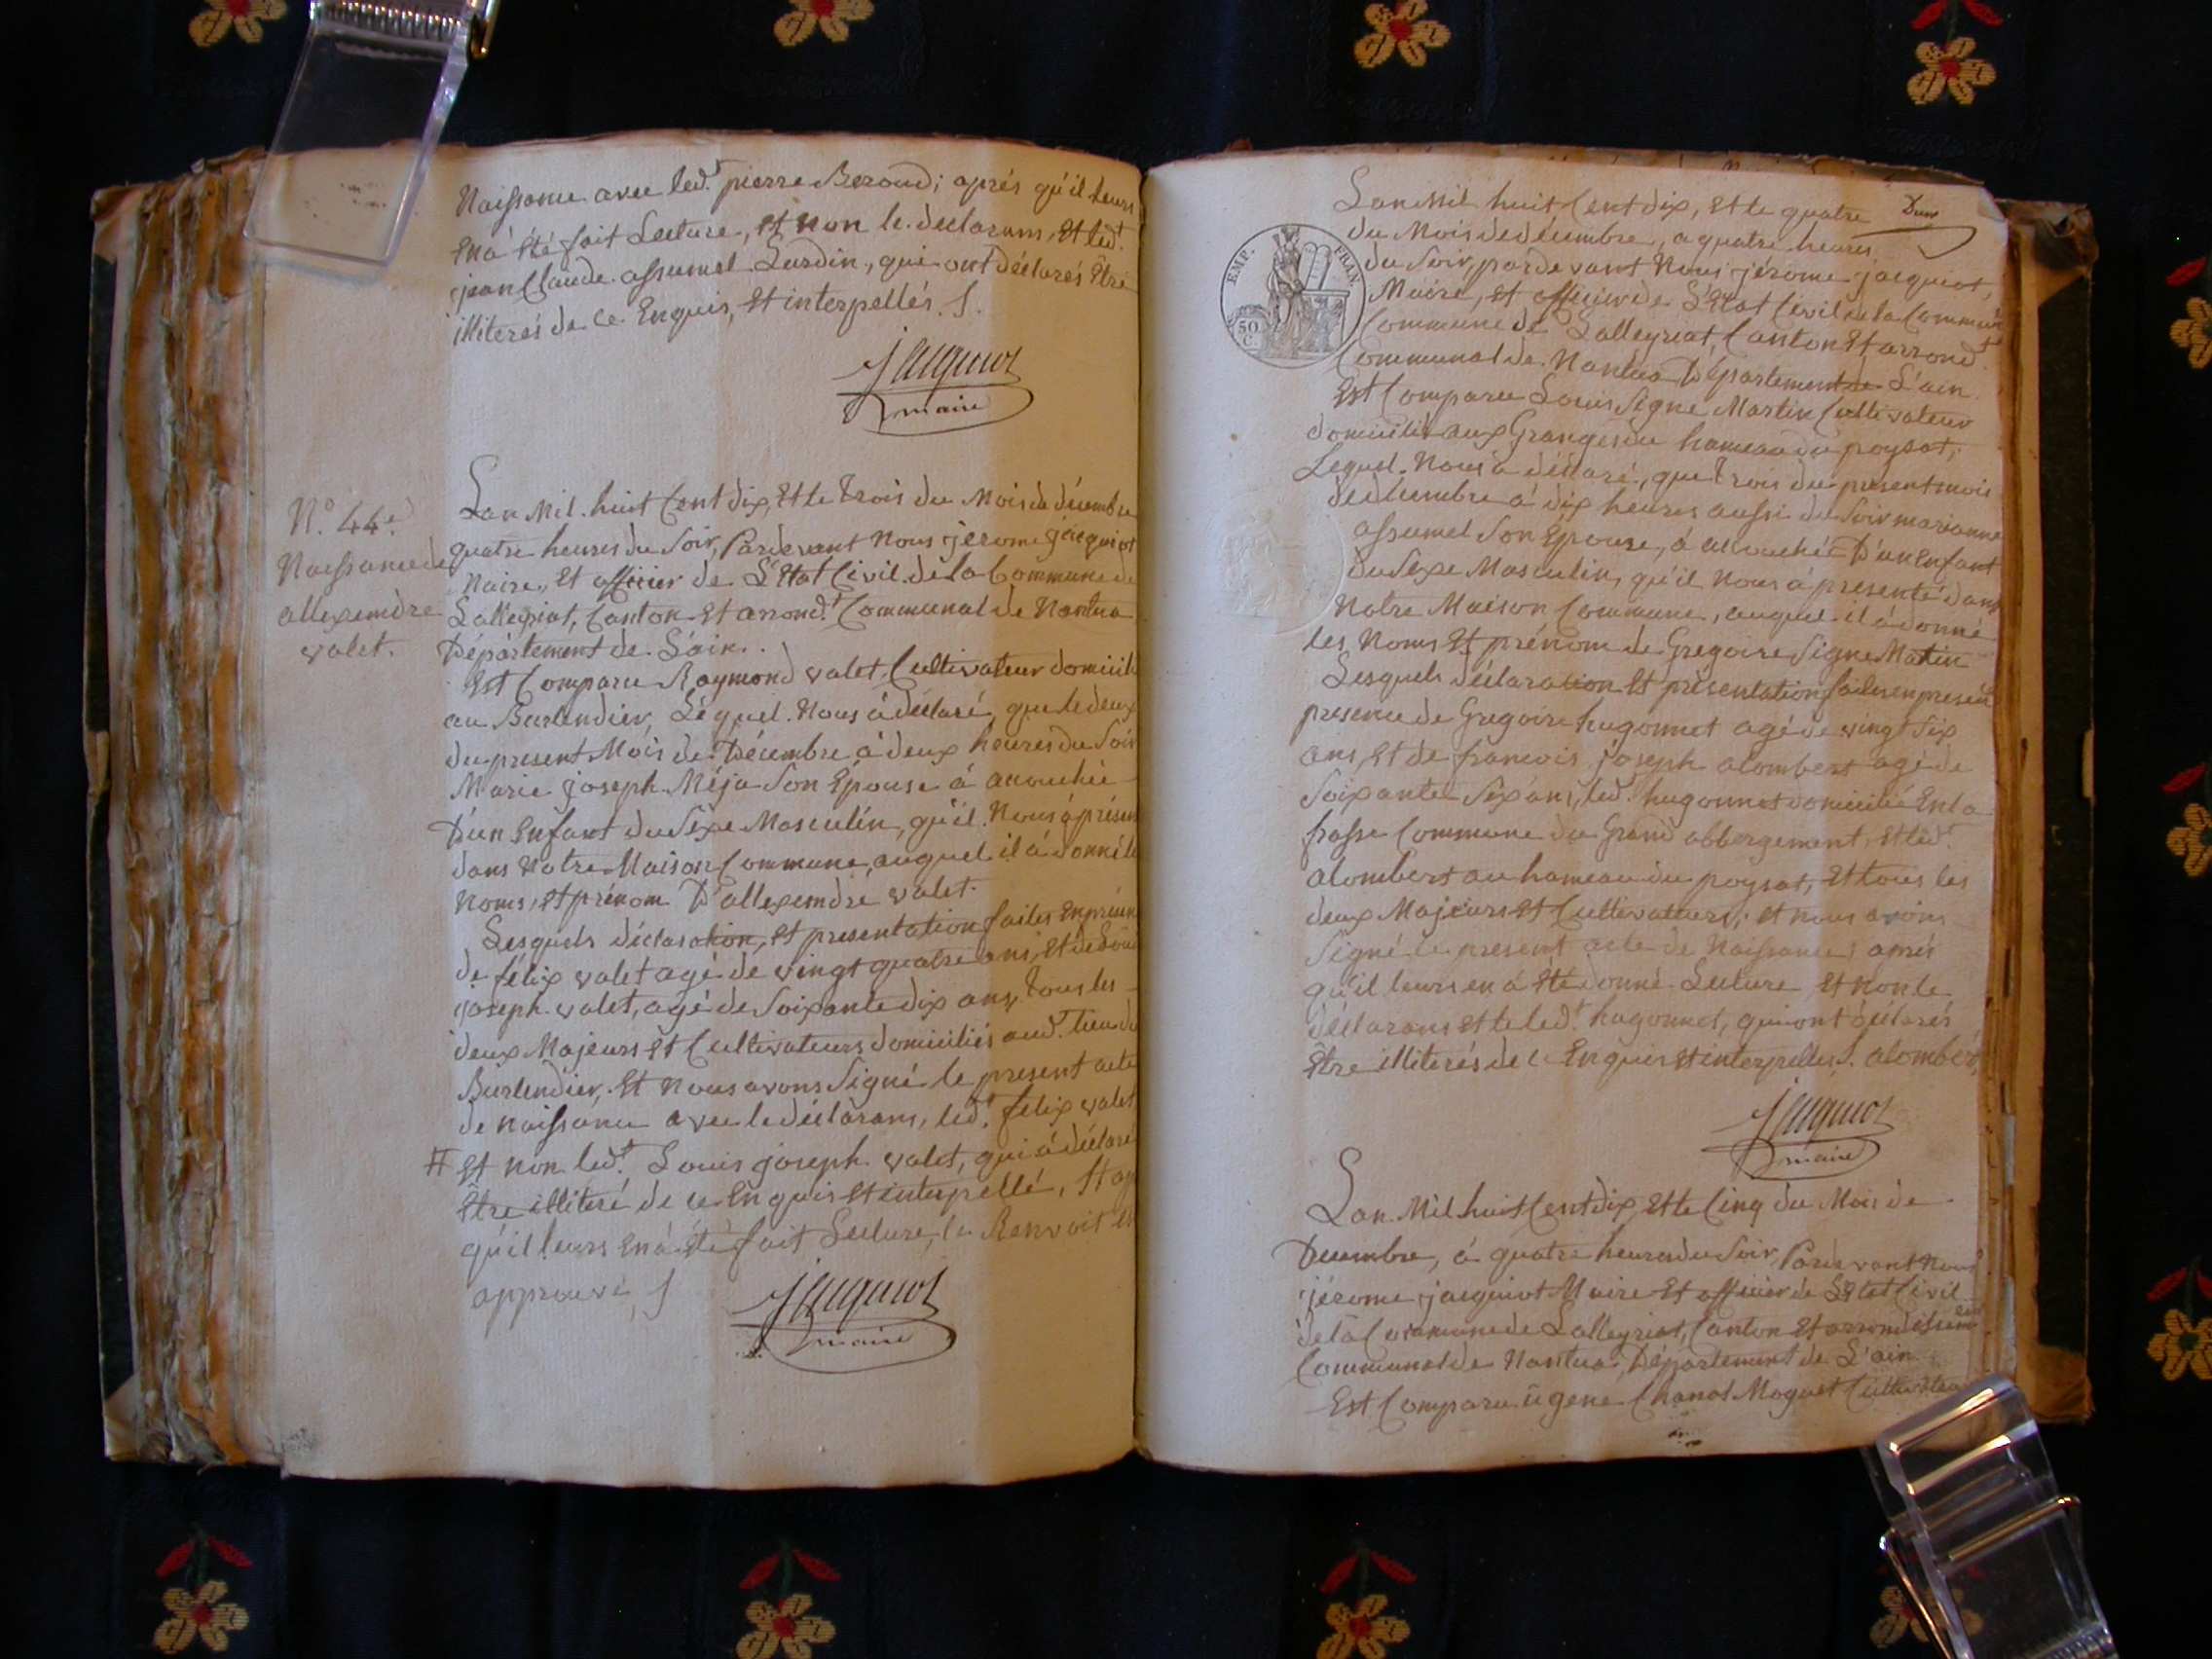 Naissance avec led.t pierre Beroud; aprés qu'il leurs
en à été fait Lecture, et non le declarans, et led.t
jean Claude assumel Lardin, qui ont déclarés être
illiterés de ce Enquis, et interpellés. /.
Jacquiot
maire
N.o 44.e
Naissance de
allexemdre
valet.
Lan Mil huit Cent dix, et le trois du Mois de décembre
quatre heures du soir, Pardevant Nous jerome jacquiot
Maire, et officier de L'état Civil de la Commune de
Lalleyriat, Canton et arrond.t Communal de Nantua
Département de L'ain.
Est Comparu Raymond valet, Cultivateur domicilié
au Burlendier, Léquel Nous à déclaré, que le deux
du present Mois de Décembre à deux heures du soir
Marie joseph Méja son Epouse à accouchée
D'un Enfant du sexe Masculin, qu'il Nous à présen
dans Notre Maison Commune, auquel il à donné le
Noms, et prénom D'allexemdre valet.
Lesquels déclaration, et presentation failes en présen
de félix valet agé de vingt quatre ans, et de Louis
joseph valet, agé de soixante dix ans, tous les
deux Majeurs et Cultivateurs domiciliés aud.t lieu du
Burlendier, Et nous avons signé le present acte
de naissance avec le déclarans, led.t felix valet
# et non led.t Louis joseph valet, qui à déclaré
être illiteré de ce enquis et interpellé, et ap
qu'il leurs en à été fait Lecture, le Renvoit et
approuvé /
Jacquiot
maire
EMP. FRAN.
50 C.
Lan Mil huit Cent dix, et le quatre
du Mois de décembre, a quatre heures
du soir, pardevant Nous jérome jacquiot,
Maire, et officier de L'état Civil de la Commune
Commune de Lalleyriat, Canton Et arrond.t
Communal de Nantua Département de L'ain
Est Comparu Louis signe Martin Cultivateur
domicilié aux Granges du hameau du poysat;
Lequel Nous à déclaré, que trois du present mois
de décembre à dix heures aussi du soir marianne
assumel son Epouse, à accouchée D'un Enfant
du sexe Masculin, qu'il Nous à presenté dans
Notre Maison Commune, auquel il à donné
les Noms et prénom de Gregoire signe Matin
Lesquels déclaration et présentation failes en presen
presence de Gregoire hugonnet agé de vingt six
ans, et de francois joseph alombert agé de
soixante six ans, led.t hugonnet domicilié en la
frasse Commune du Grand abbergement, et led.t
alombert au hameau du poysat, et tous les
deux Majeurs et Cultivateurs; et nous avons
signé le present acte de Naissance; aprés
qu'il leurs en à été donné Lecture et non le
déclarans et le led.t hugonnet, qui ont déclarés
être illiterés de ce Enquis et interpellés /. alombert,
Jacquiot
maire
Lan Mil huit Cent dix, et le Cinq du Mois de
Decembre, à quatre heures du soir, Pardevant Nous
jérome jacquiot Maire Et officier de L'Etat Civil
de la Commune de Lalleyriat, Canton Et arrondissem
Communal de Nantua, Département de L'ain
Est Comparu ugene Chanal Moguet Cultivateur